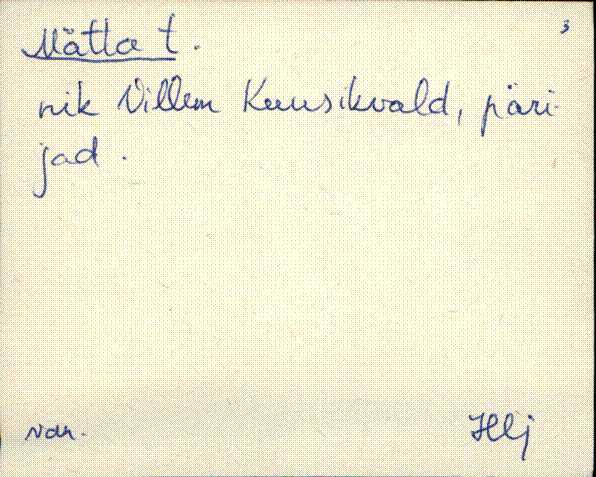 Mätta t. 3
nik Villem Kuusikvald, päri-
jad.
van. Hlj